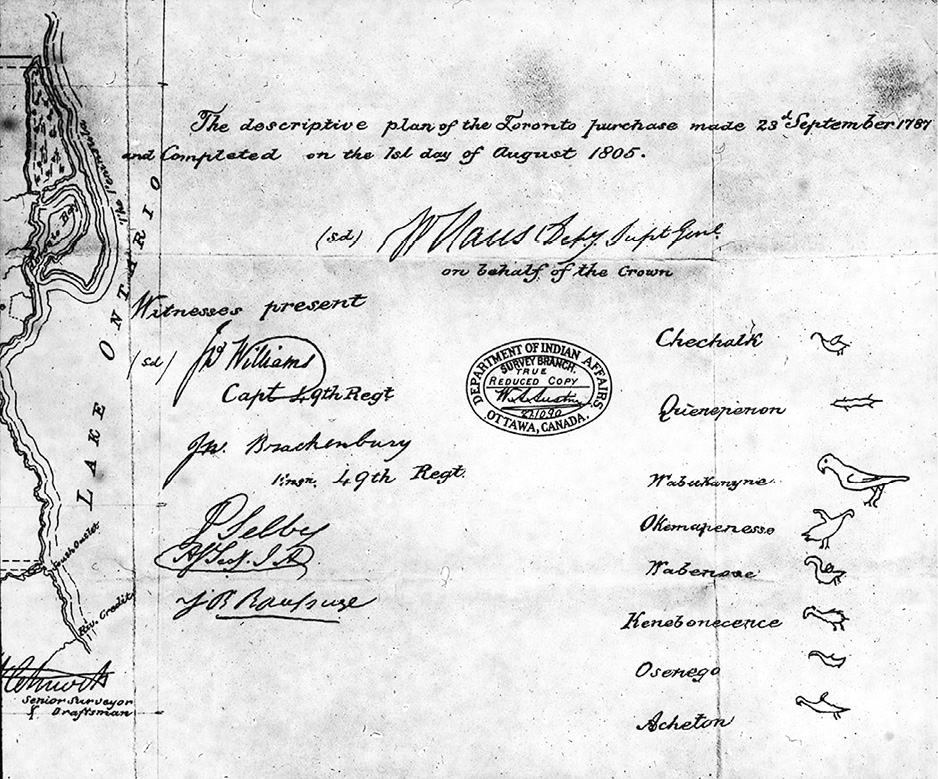 The descriptive plan of the Toronto purchase made 23d September 1787
and Completed on the 1st day of August 1805.
(sd) W Claus Depy. Supt Genl.
on behalf of the Crown
Witnesses present
(sd) Williams
Capt 49th Regt
Jn. Brackenbury
49th Regt.
P Selby
J B Rousseau
DEPARTMENT OF INDIAN AFFAIRS
SURVEY BRANCH.
TRUE
REDUCED COPY
OTTAWA, CANADA.
Chechalk
Quieneperon
Wabukanyne
Okemapenesse
Wabenose
Kenebonecence
Osenego
Acheton
The Peninsula
LAKE ONTARIO
South Outlet
Riv. Credit
Senior Surveyor
& Draftsman